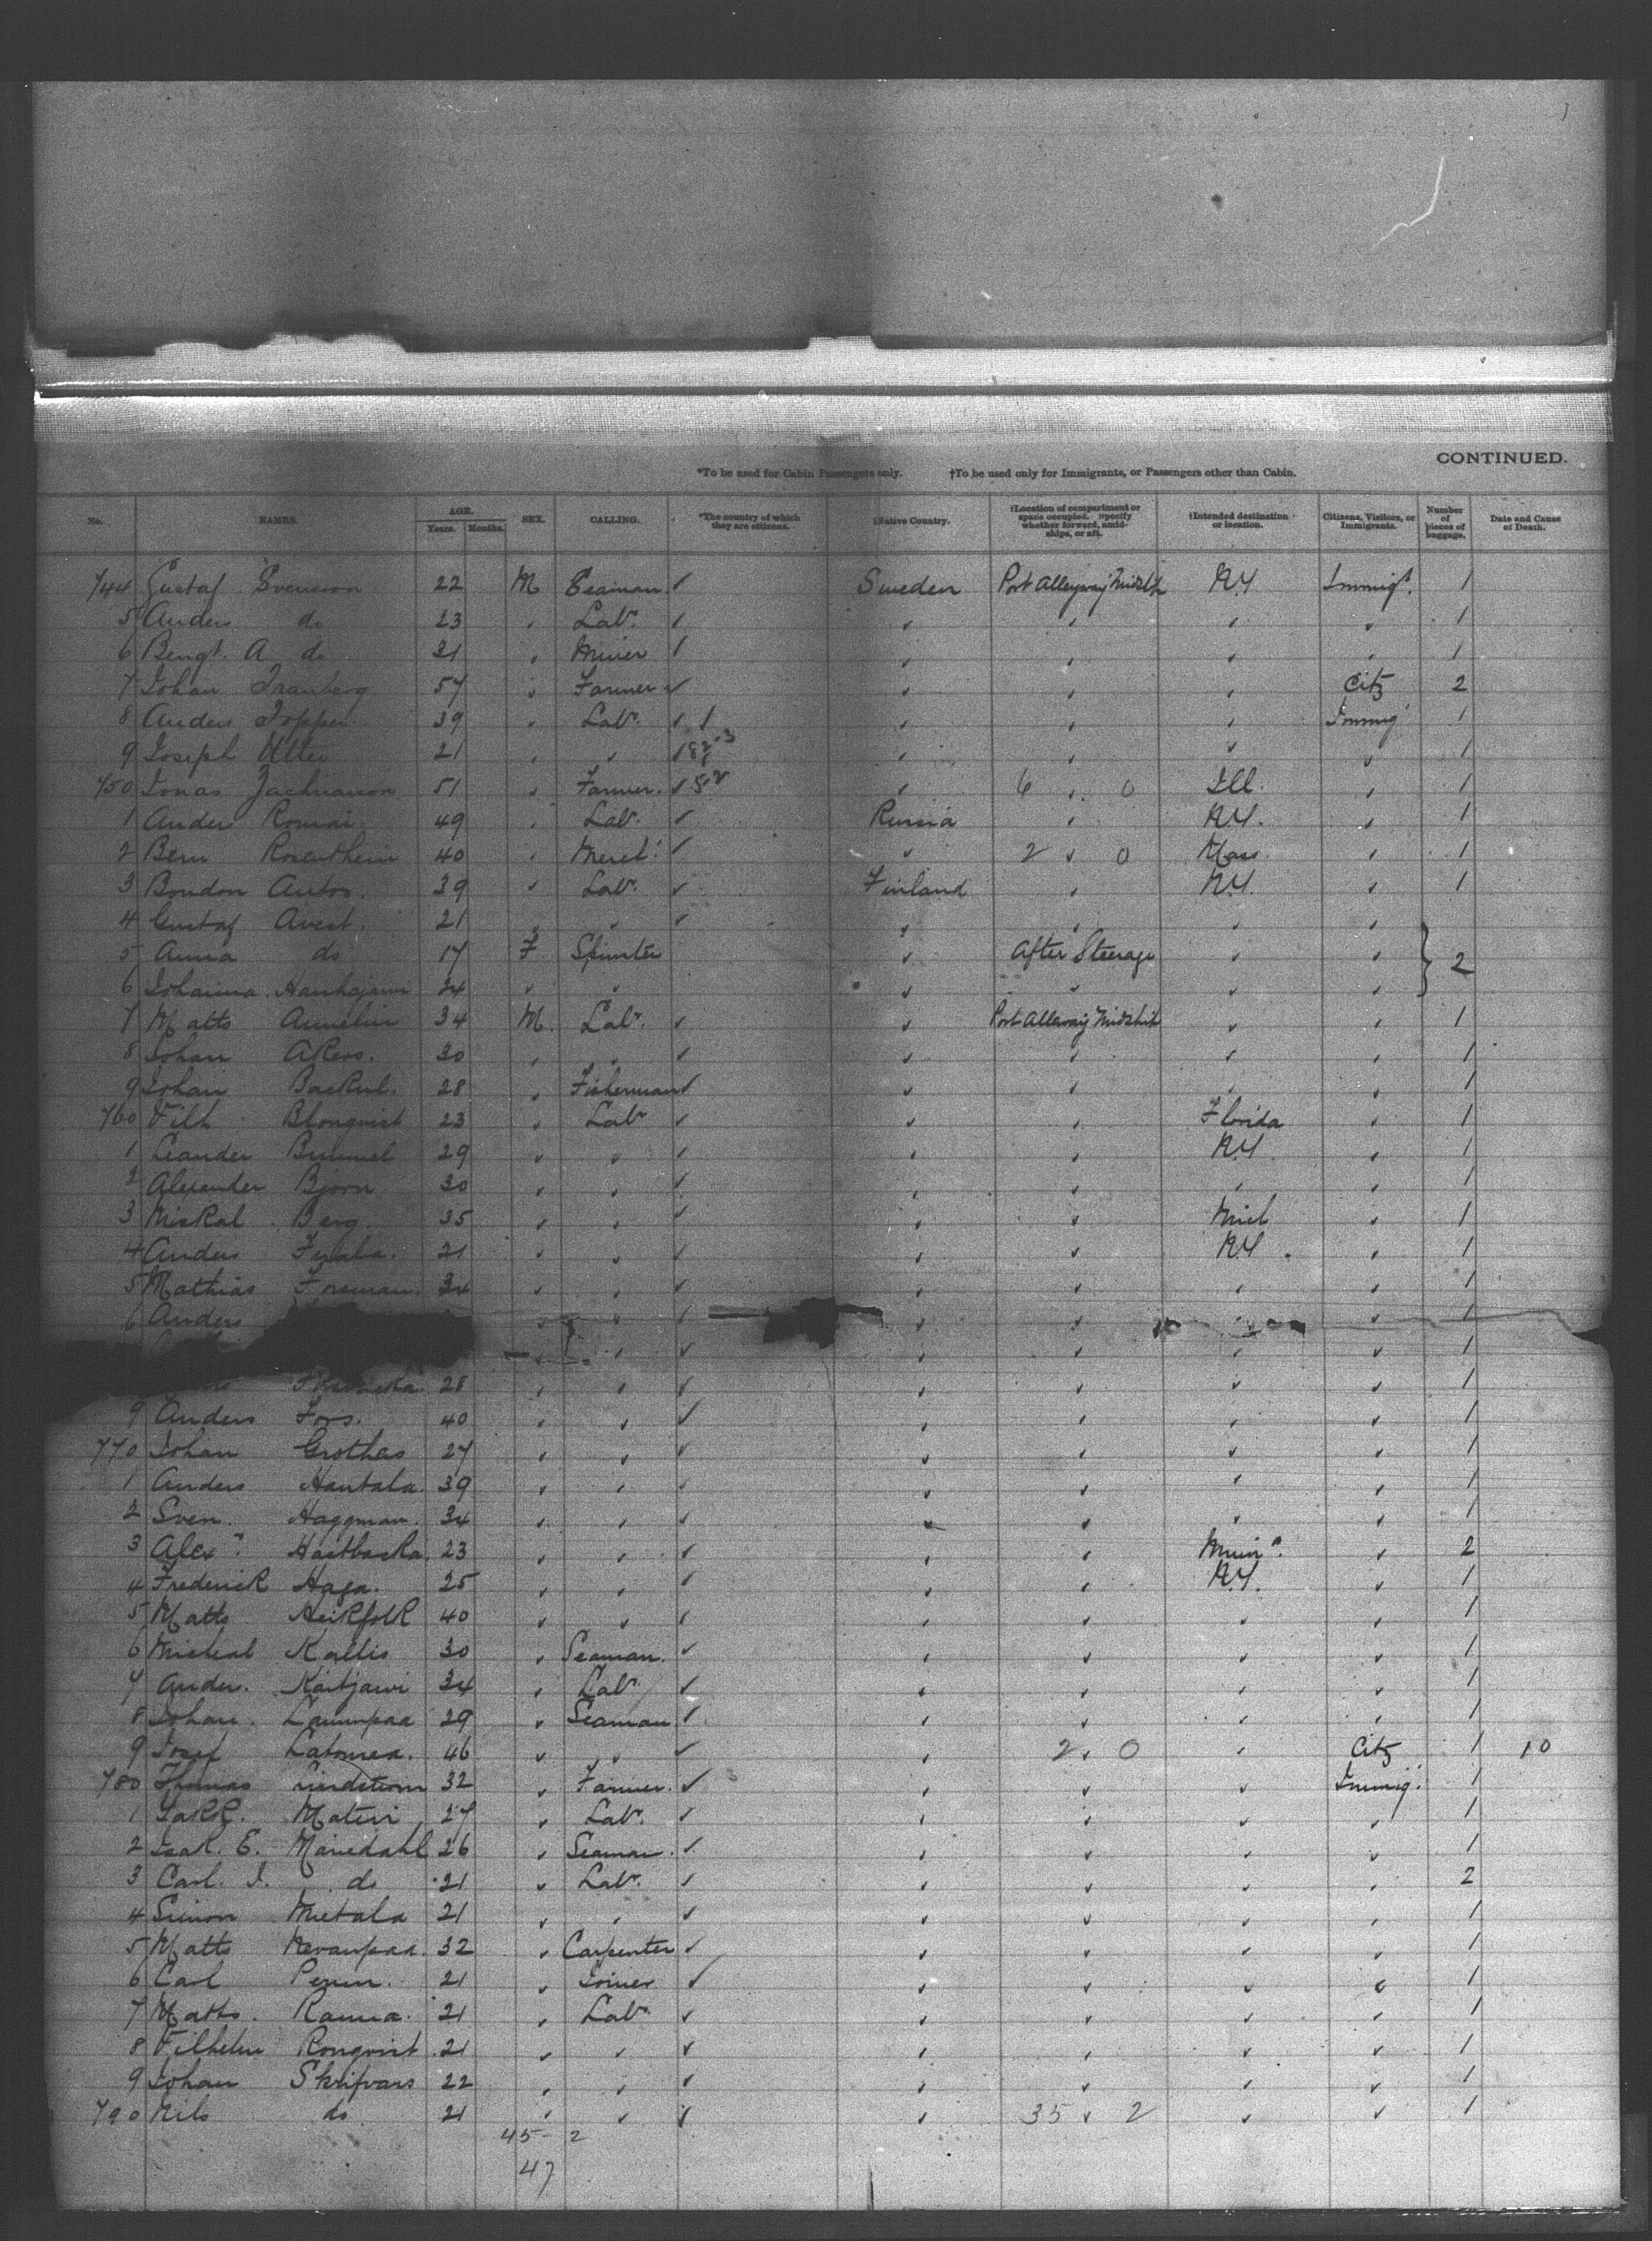 CONTINUED.
*To be used for Cabin Passengers only. †To be used only for Immigrants, or Passengers other than Cabin.
No. NAMES. AGE. Years. Months. SEX. CALLING. *The country of which they are citizens. †Native Country. †Location of compartment or space occupied. Specify whether forward, amidships, or aft. †Intended destination or location. Citizens, Visitors, or Immigrants. Number of pieces of baggage. Date and Cause of Death.
744 Gustaf Svenson 22 M Seaman ✓ Sweden Port Alleyway Midsh N.Y Immigt. 1
5 Anders do 23 ✓ Labr. ✓ ✓ ✓ ✓ ✓ 1
6 Bengt. A do 31 ✓ Miner ✓ ✓ ✓ ✓ ✓ 1
7 Johan Tranberg 57 ✓ Farmer ✓ ✓ ✓ ✓ Citz 2
8 Anders Topper 39 ✓ Labr. ✓ ✓ ✓ ✓ Immig 1
9 Joseph 21 ✓ ✓ ✓ ✓ ✓ ✓ 1
750 Jonas Zachrisson 51 ✓ Farmer. ✓ ✓ 6 ✓ 0 Ill. ✓ 1
1 Ander 49 ✓ Labr. ✓ Russia ✓ N.Y. ✓ 1
2 Bern 40 ✓ Mercht. ✓ ✓ 2 ✓ 0 Mass. ✓ 1
3 Bondon Antos. 39 ✓ Labr. ✓ Finland ✓ N.Y. ✓ 1
4 Gustaf Avest. 21 ✓ ✓ ✓ ✓ ✓ ✓ ✓
5 Anna do 17 F Spinster ✓ After Steerage ✓ ✓ 2
6 Johanna ✓ ✓ ✓ ✓ ✓ ✓
7 Matts 34 M. Labr. ✓ ✓ Port Allaway Midship ✓ ✓ 1
8 Johan Akers. 30 ✓ ✓ ✓ ✓ ✓ ✓ ✓ 1
9 Johan 28 ✓ Fisherman ✓ ✓ ✓ ✓ ✓ 1
760 Vilh Blonqvist 23 ✓ Labr ✓ ✓ ✓ Florida ✓ 1
1 Leander Brummel 29 ✓ ✓ ✓ ✓ ✓ N.Y. ✓ 1
2 Alexander Bjorn 30 ✓ ✓ ✓ ✓ ✓ ✓ ✓ 1
3 Miskal Berg. 35 ✓ ✓ ✓ ✓ ✓ Mich ✓ 1
4 Anders 21 ✓ ✓ ✓ ✓ ✓ N.Y. ✓ 1
5 Mathias Forsman. 34 ✓ ✓ ✓ ✓ ✓ ✓ ✓ 1
6 Anders ✓ ✓ ✓ ✓ ✓ ✓ 1
✓ ✓ ✓ ✓ ✓ ✓ ✓ 1
28 ✓ ✓ ✓ ✓ ✓ ✓ ✓ 1
9 Anders Fors. 40 ✓ ✓ ✓ ✓ ✓ ✓ ✓ 1
770 Johan Grothas 27 ✓ ✓ ✓ ✓ ✓ ✓ ✓ 1
1 Anders Hantala. 39 ✓ ✓ ✓ ✓ ✓ ✓ ✓ 1
2 Sven. Haggman. 34 ✓ ✓ ✓ ✓ ✓ ✓ ✓ 1
3 Alexr. Hastbacka. 23 ✓ ✓ ✓ ✓ ✓ Minna. ✓ 2
4 Frederick Haga. 25 ✓ ✓ ✓ ✓ ✓ N.Y. ✓ 1
5 Matts Heikfolk 40 ✓ ✓ ✓ ✓ ✓ ✓ ✓ 1
6 Micheal Kallis 30 ✓ Seaman. ✓ ✓ ✓ ✓ ✓ 1
7 Anders. Kaitjarvi 34 ✓ Labr. ✓ ✓ ✓ ✓ ✓ 1
8 Johan. 29 ✓ Seaman ✓ ✓ ✓ ✓ ✓ 1
9 Josef Latomea. 46 ✓ ✓ ✓ ✓ 2 ✓ 0 ✓ Citz 1 10
780 Thomas Lindstrom 32 ✓ Farmer. ✓ ✓ ✓ ✓ Immig. 1
1 Jakk. 27 ✓ Labr. ✓ ✓ ✓ ✓ ✓ 1
2 Isak. E. Mariedahl 26 ✓ Seaman. ✓ ✓ ✓ ✓ ✓ 1
3 Carl. J. do 21 ✓ Labr. ✓ ✓ ✓ ✓ ✓ 2
4 Simon Mietala 21 ✓ ✓ ✓ ✓ ✓ ✓ ✓ 1
5 Matts Nevanpaa. 32 ✓ Carpenter ✓ ✓ ✓ ✓ ✓ 1
6 Carl 21 ✓ Joiner ✓ ✓ ✓ ✓ ✓ 1
7 Matts. Ranna. 21 ✓ Labr. ✓ ✓ ✓ ✓ ✓ 1
8 Vilhelm Ronqvist 21 ✓ ✓ ✓ ✓ ✓ ✓ ✓ 1
9 Johan Skrifvars 22 ✓ ✓ ✓ ✓ ✓ ✓ ✓ 1
790 Nils do 21 ✓ ✓ ✓ ✓ 35 ✓ 2 ✓ ✓ 1
45 - 2
47